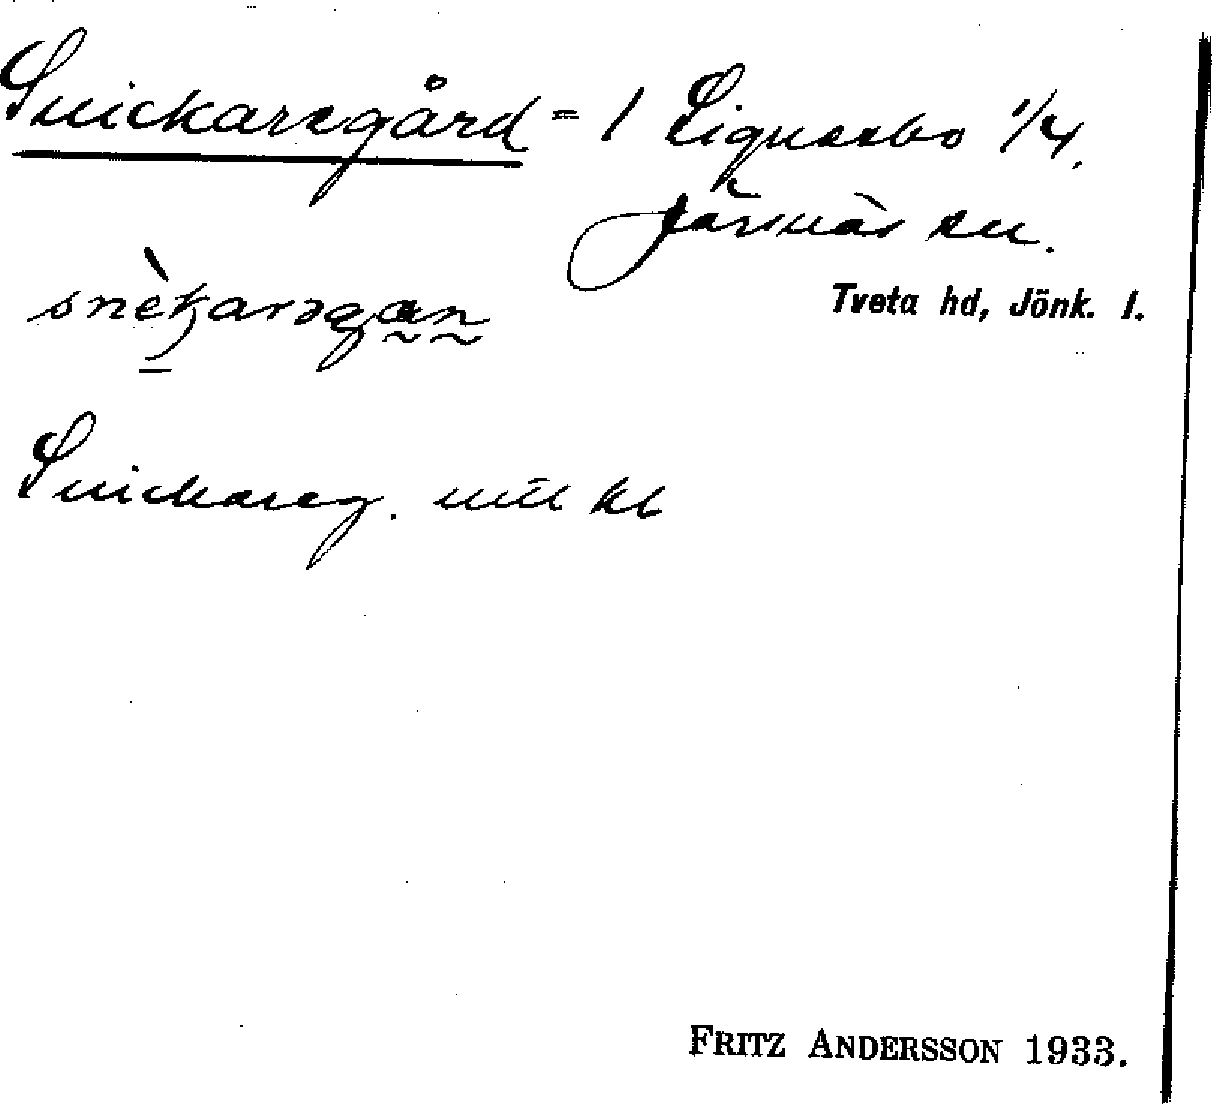 Snickaregård = 1 Signesbo 1/4.
Järsnäs sn.
Tveta hd, Jönk. l.
snèkarəgan
Snickareg.
FRITZ ANDERSSON 1933.